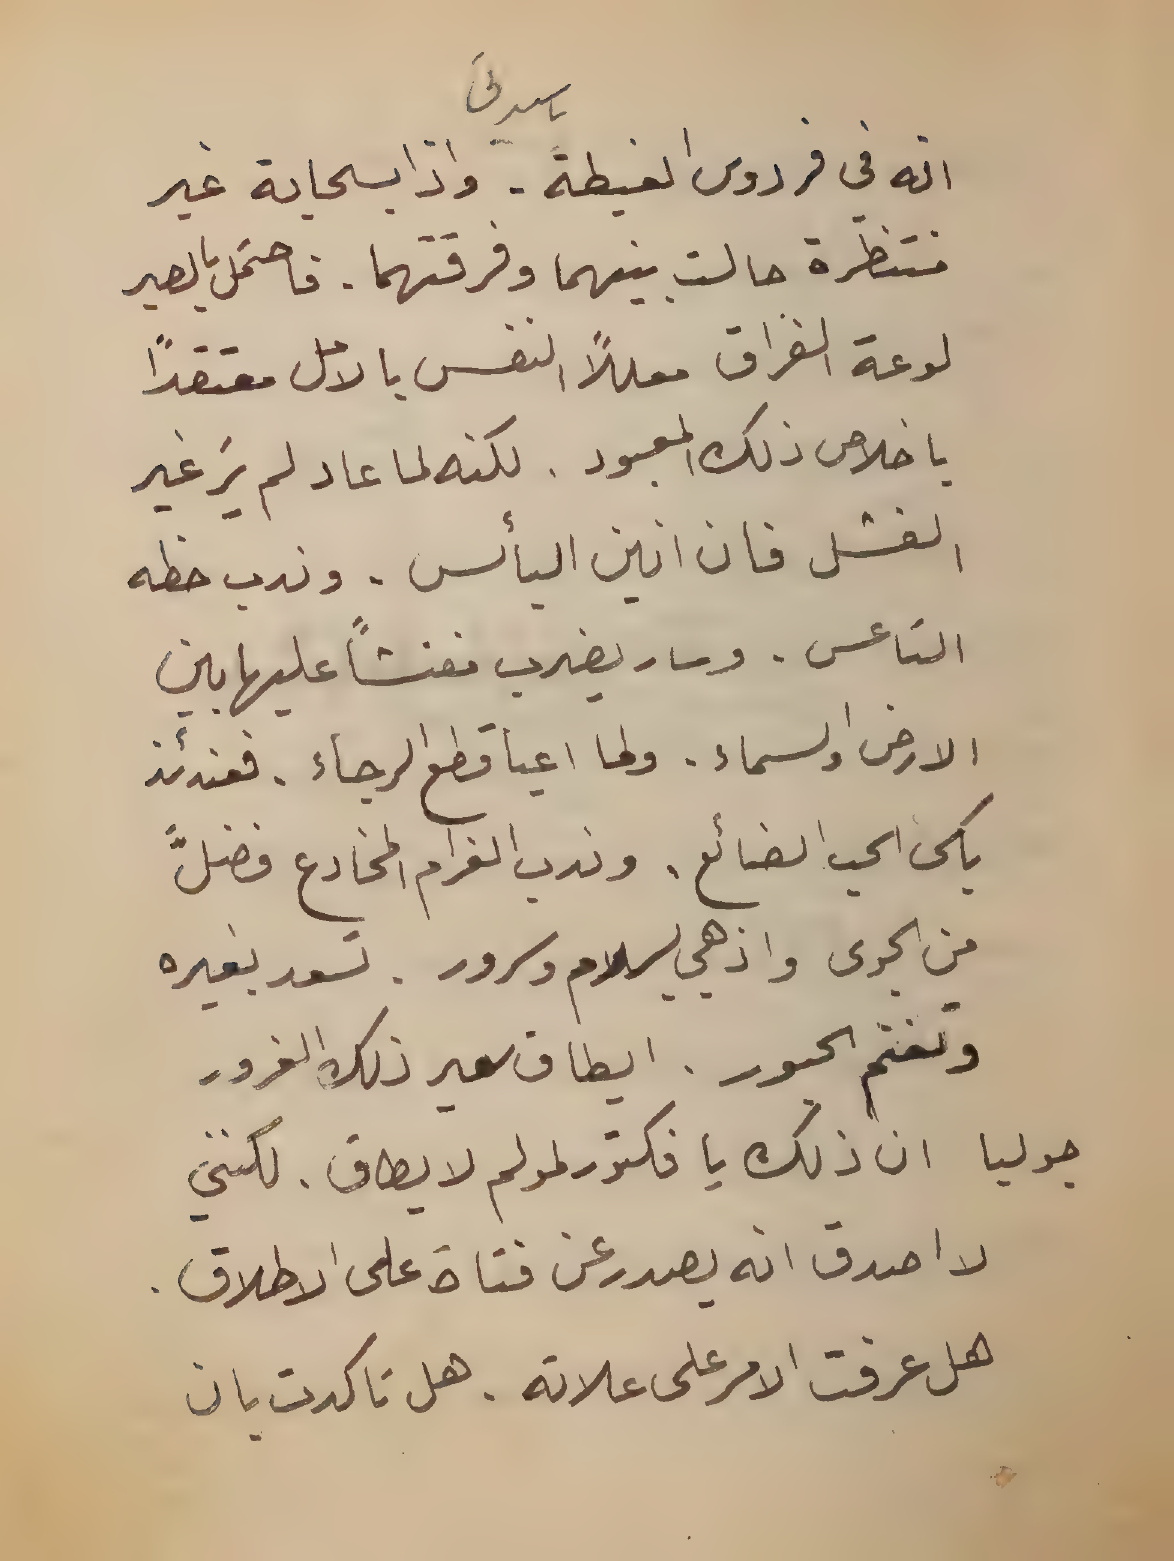 يا سيدتي
انه في فردوس الغبطة . واذا بسحابة غير
منتظرة حالت بينهما وفرقتهما . فاحتمل بالصبر
لوعة الفراق معللاً النفس بالامل معتقداً
باخلاص ذلك المعبود . لكنه لما عاد لم يرَ غير
الفشل فان انين اليأس . وندب حظه
التاعس . وسار يضرب مفتشاً عليها بين
الارض والسماء . ولما اعيا قطع الرجاء . فعندئذ
بكى الحب الضائع . وندب الغرام المخادع فضلَّ
من الجوى واذهبي بسلام وسرور . تسعد بغيره
وتغتنم الحبور . ايطاق سعير ذلك الغرور
جوليا ان ذلك يا فكتور لمولم لا يطاق . لكنني
لا اصدق انه يصدر عن فتاة على الاطلاق .
هل عرفت الامر على علاته . هل تاكدت بان